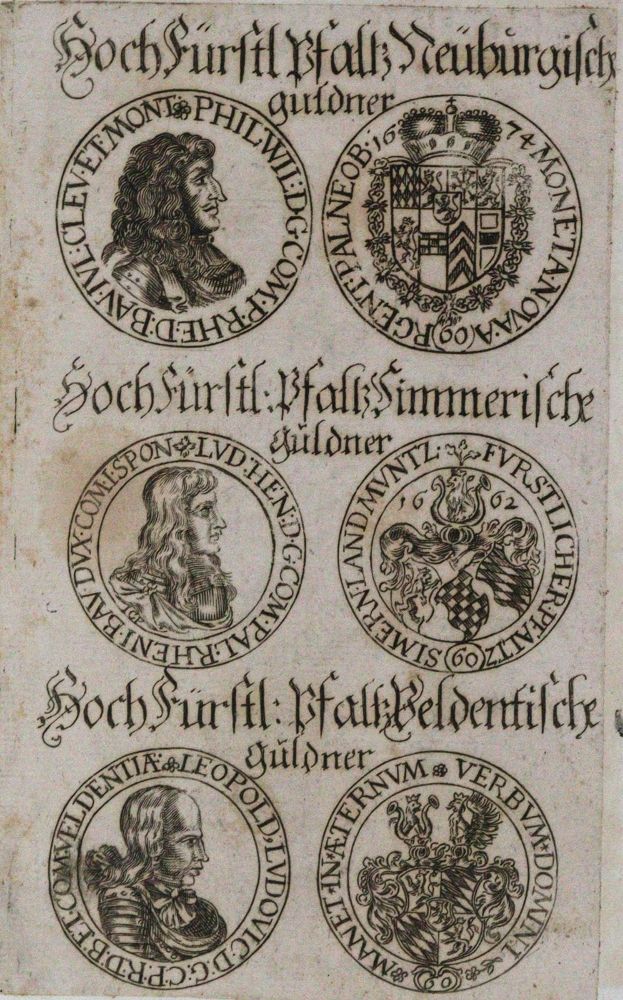 Hoch Fürstl Pfaltz Neüburgische
guldner
PHIL.WIL:D.G.COM.P.RHE:D.BAV.IVL:CLEV.ET.MONT:
16 74 MONETA:NOVA:A(60)RGENT:PAL.NEOB:
Hoch Fürstl: Pfaltz Simmerische
Güldner
LVD:HEN:D:G:COM:PAL:RHENI:BAV DVX:COM:SPON
FVRSTLICHER:PFALTZ(60)SIMERN:LANDMVNTZ:
1662
Hoch Fürstl: Pfaltz Veldentische
Güldner
LEOPOLD:LVDOVIC:D:G:C:P:R:D:B:ET:COM:VELDENTIÆ:
VERBVM:DOMINI MANET:IN:ÆTERNVM
60